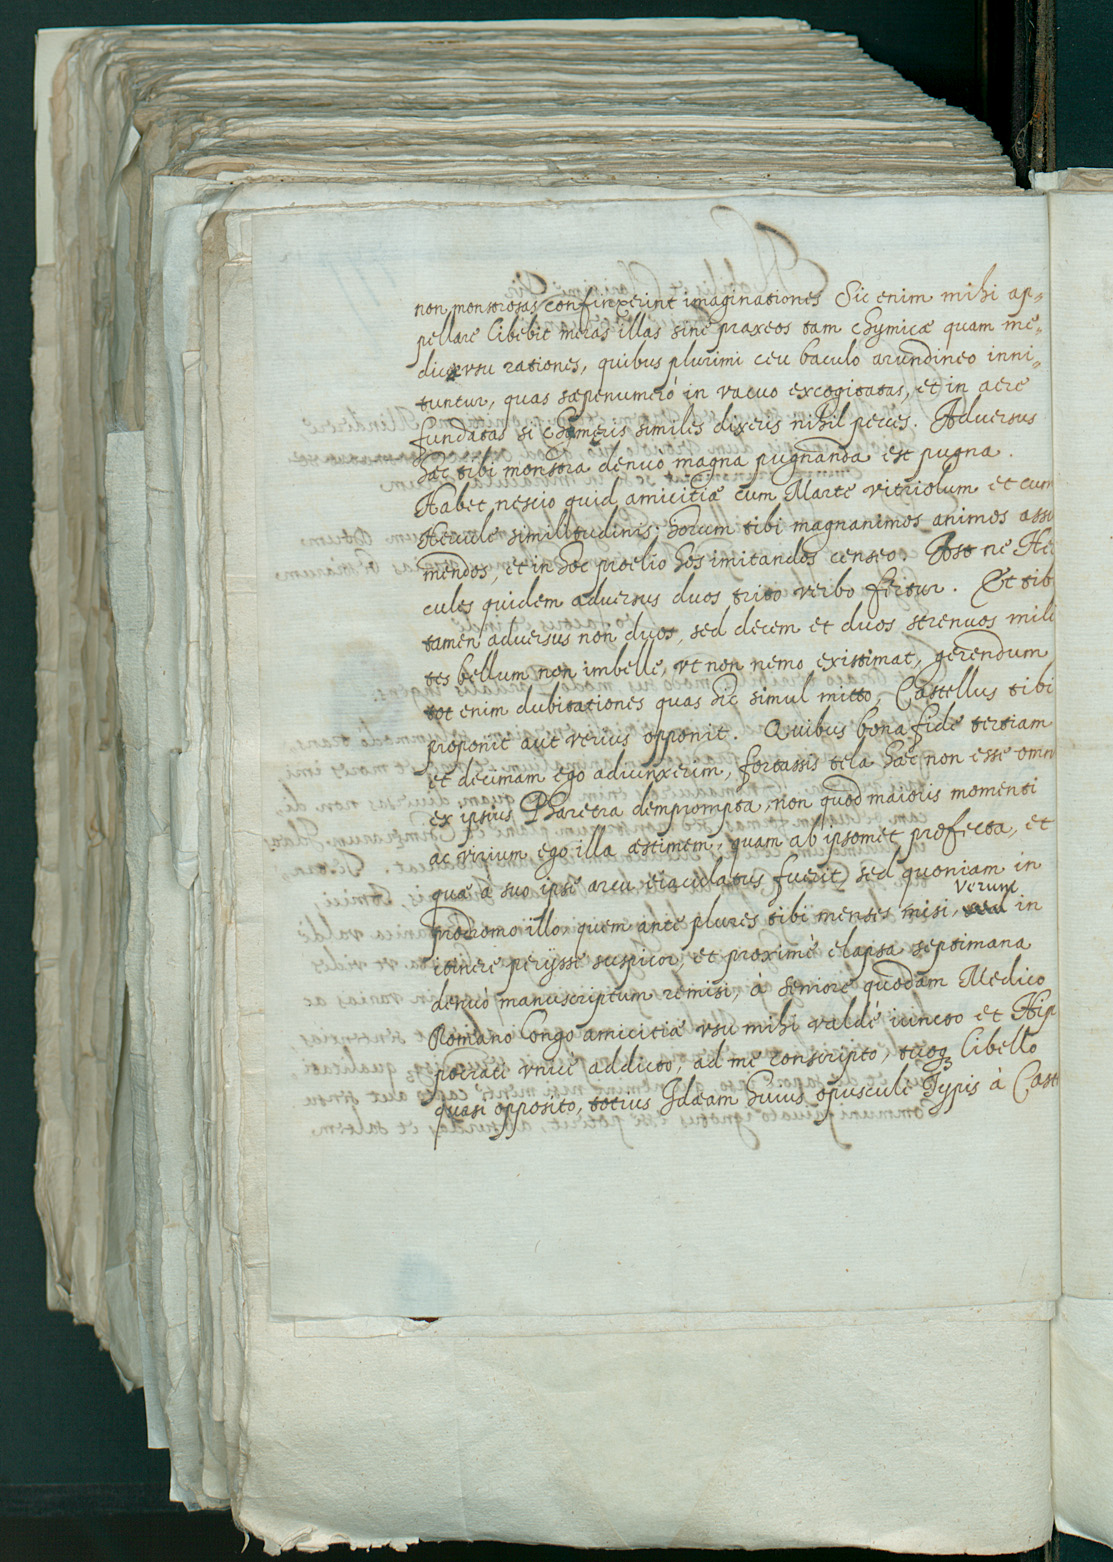 non monstrosas confinxerint imaginationes Sic enim mihi ap-
pellare libebit meras illas sine praxeos tam chymicæ quam me-
dicæ vsu rationes, quibus plurimi ceu baculo arundineo inni-
tuntur, quas sæpenumerò in vacuo excogitatas, et in aere
fundatas si chymeris similes dixeris nihil peces. Adversus
hæc tibi monstra denuo magna pugnanda est pugna.
Habet nescio quid amicitiæ cum Marte vitriolum et cum
Hercule similitudinis; horum tibi magnanimos animos assu
mendos, et in hoc prœlio hos imitandos censeo. Ast ne Her
cules quidem adversus duos trito verbo fertur. Et tibi
tamen adversus non duos, sed decem et duos strenuos mili
tes bellum non imbelle, vt non nemo existimat, gerendum
tot enim dubitationes quas hic simul mitto, Castellus tibi
proponit aut verius opponit. Quibus bona fide tertiam
et decimam ego adiunxerim, fortassis tela hæc non esse omn
ex ipsius Pharetra demprompta, non quod maioris momenti
ac virium ego illa æstimem, quam ab ipsomet profecta, et
quæ a suo ipse arcu eiaculatus fuerit, sed quoniam in
prodromo illo, quem ante plures tibi menses misi, verum in
itinere perijsse suspicor, et proximè elapsa septimana
denuò manuscriptum remisi, à seniore quodam Medico
Romano longo amicitiæ vsu mihi valdè iuncto et Hip
pocrati vnicè addicto, ad me conscripto, tuoq3 libello
quasi opposito, totius Idæam huius opusculi Typis à Cast